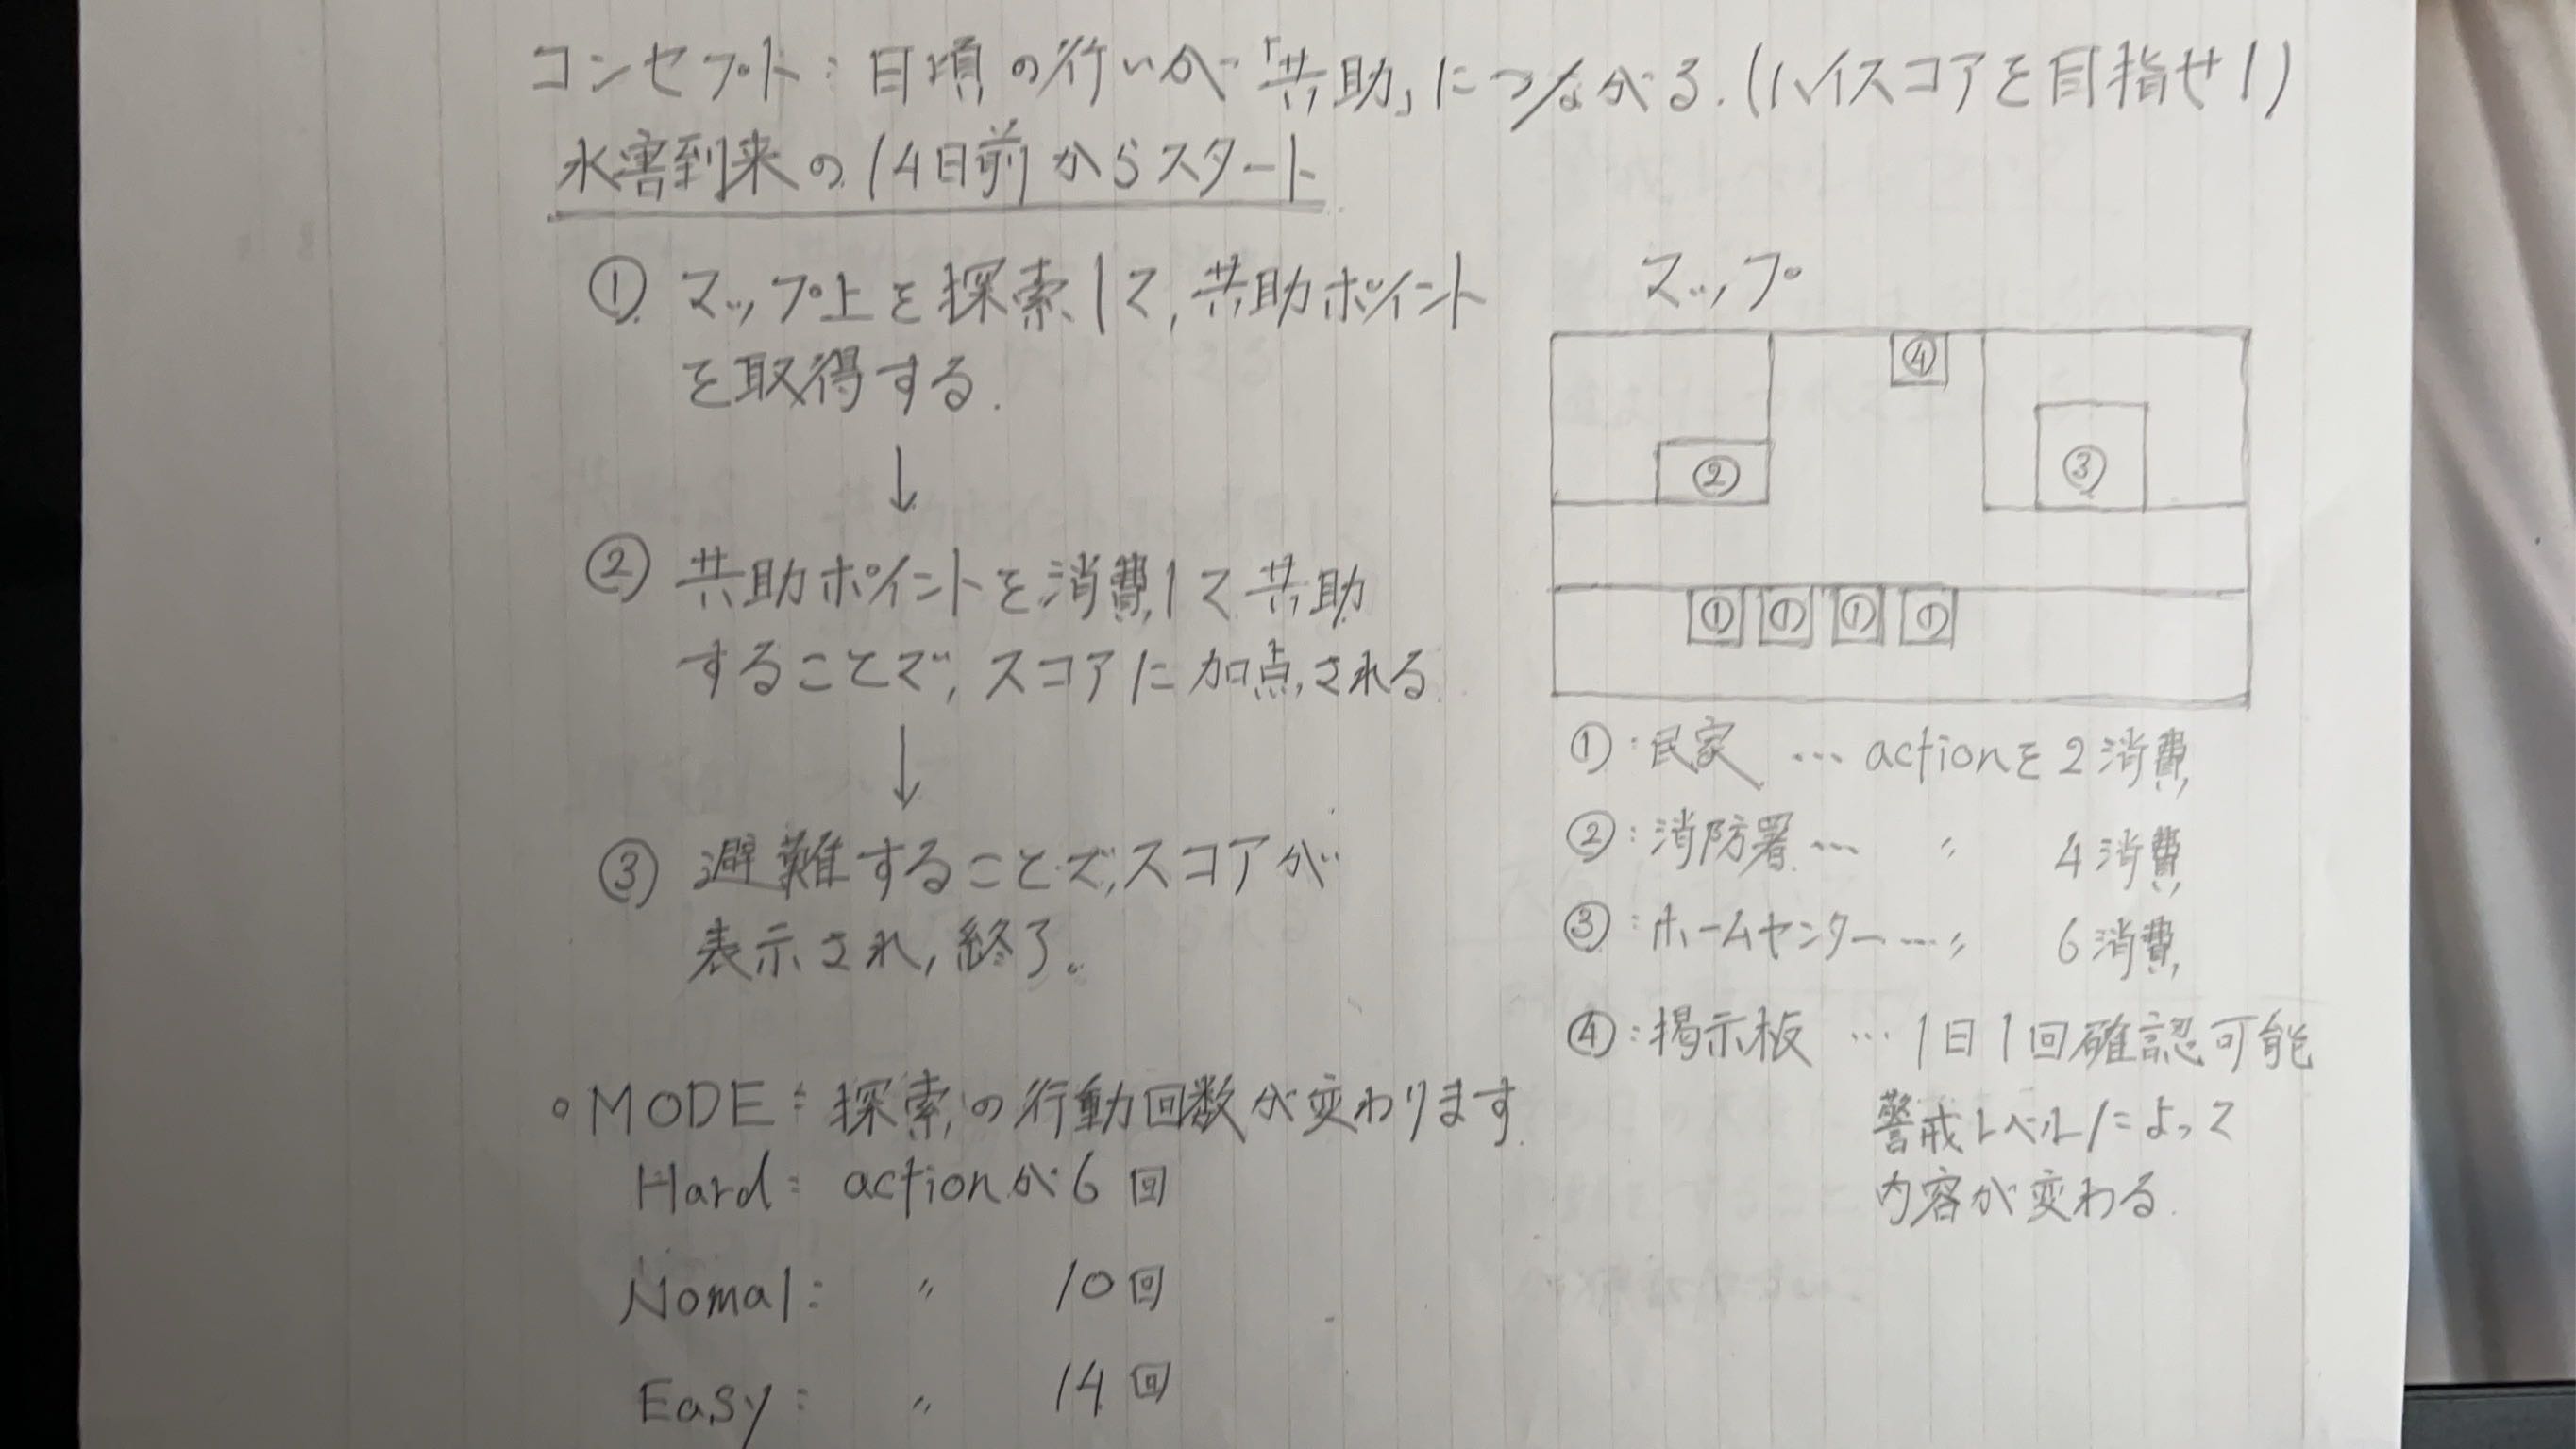 コンセプト：日頃の行いが「共助」につながる.(ハイスコアを目指せ!)
水害到来の14日前からスタート
① マップ上を探索して,共助ポイント
を取得する.
↓
② 共助ポイントを消費して共助
することで,スコアに加点される.
↓
③ 避難することで,スコアが
表示され,終了。
◦MODE：探索の行動回数が変わります.
Hard： actionが6回
Nomal： 〃 10回
Easy： 〃 14回
マップ
④
②
③
① ① ① ①
①：民家 … actionを2消費
②：消防署… 〃 4消費
③：ホームセンター…〃 6消費
④：掲示板 … 1日1回確認可能
警戒レベルによって
内容が変わる.